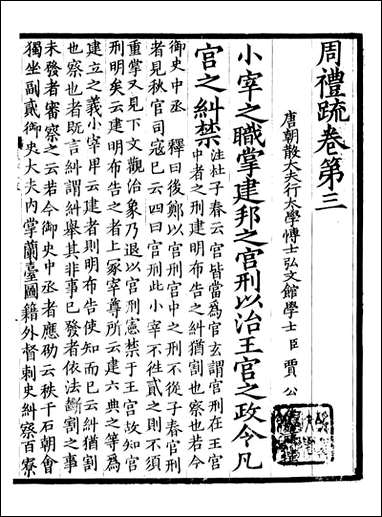 周禮疏卷第三
唐朝散大夫行太學博士弘文館學士臣賈公
小宰之職掌建邦之官刑以治王宮之政令凡
宮之糾禁
注杜子春云宮皆當為官玄謂官刑在王宮
中者之刑建明布告之糾猶割也察也若今
御史中丞 釋曰後鄭以官刑宮中之刑不從子春官刑
者見秋官司寇已云四曰官刑此小宰不往貳之則不須
重掌又見下文觀治象乃退以官刑憲禁于王宮故知宮
刑明矣云建明布告之者上冢宰尊所云建六典之等為
建立之義小宰卑云建者則明布告使知而已云糾猶割
也察也者既言糾謂糾舉其非事已發者依法斷割之事
未發者審察之云若今御史中丞者應劭云秩千石朝會
獨坐副貳御史大夫內掌蘭臺圖籍外督刺史糾察百寮